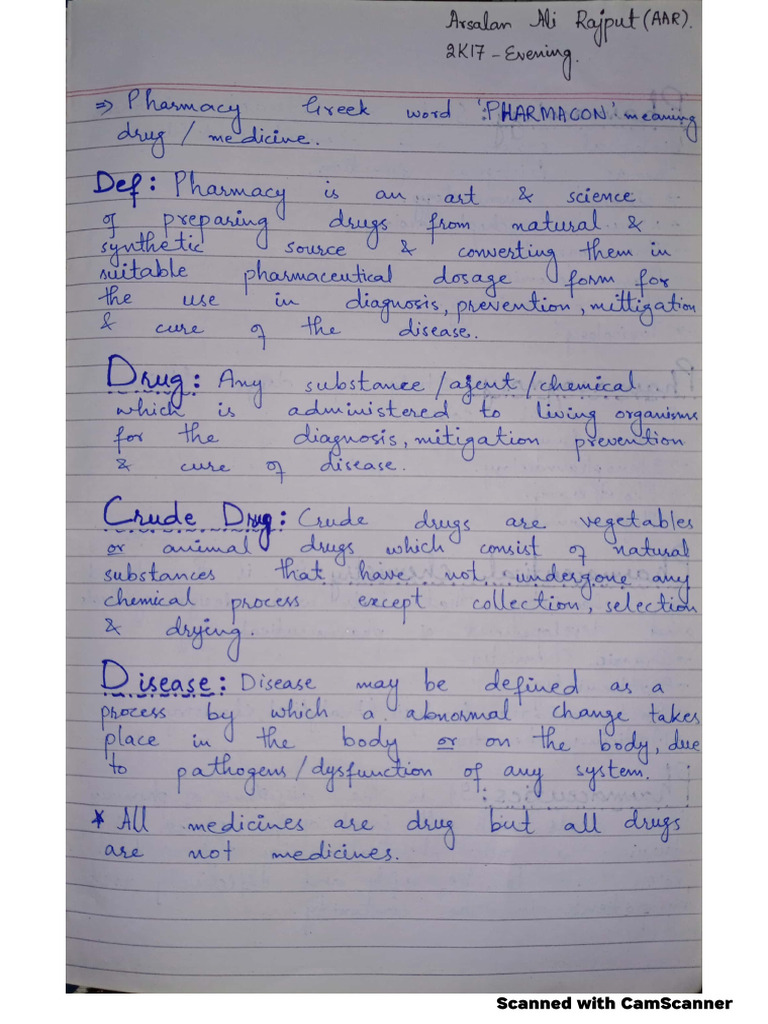 Arsalan Ali Rajput (AAR).
2K17 - Evening.
⇒ Pharmacy Greek word 'PHARMACON' meaning
drug / medicine.
Def: Pharmacy is an art & science
of preparing drugs from natural &
synthetic source & converting them in
suitable pharmaceutical dosage form for
the use in diagnosis, prevention, mittigation
& cure of the disease.
Drug: Any substance/agent/chemical
which is administered to living organisms
for the diagnosis, mitigation prevention
& cure of disease.
Crude Drug: Crude drugs are vegetables
or animal drugs which consist of natural
substances that have not undergone any
chemical process except collection, selection
& drying.
Disease: Disease may be defined as a
process by which a abnormal change takes
place in the body or on the body, due
to pathogens/dysfunction of any system.
* All medicines are drug but all drugs
are not medicines.
Scanned with CamScanner